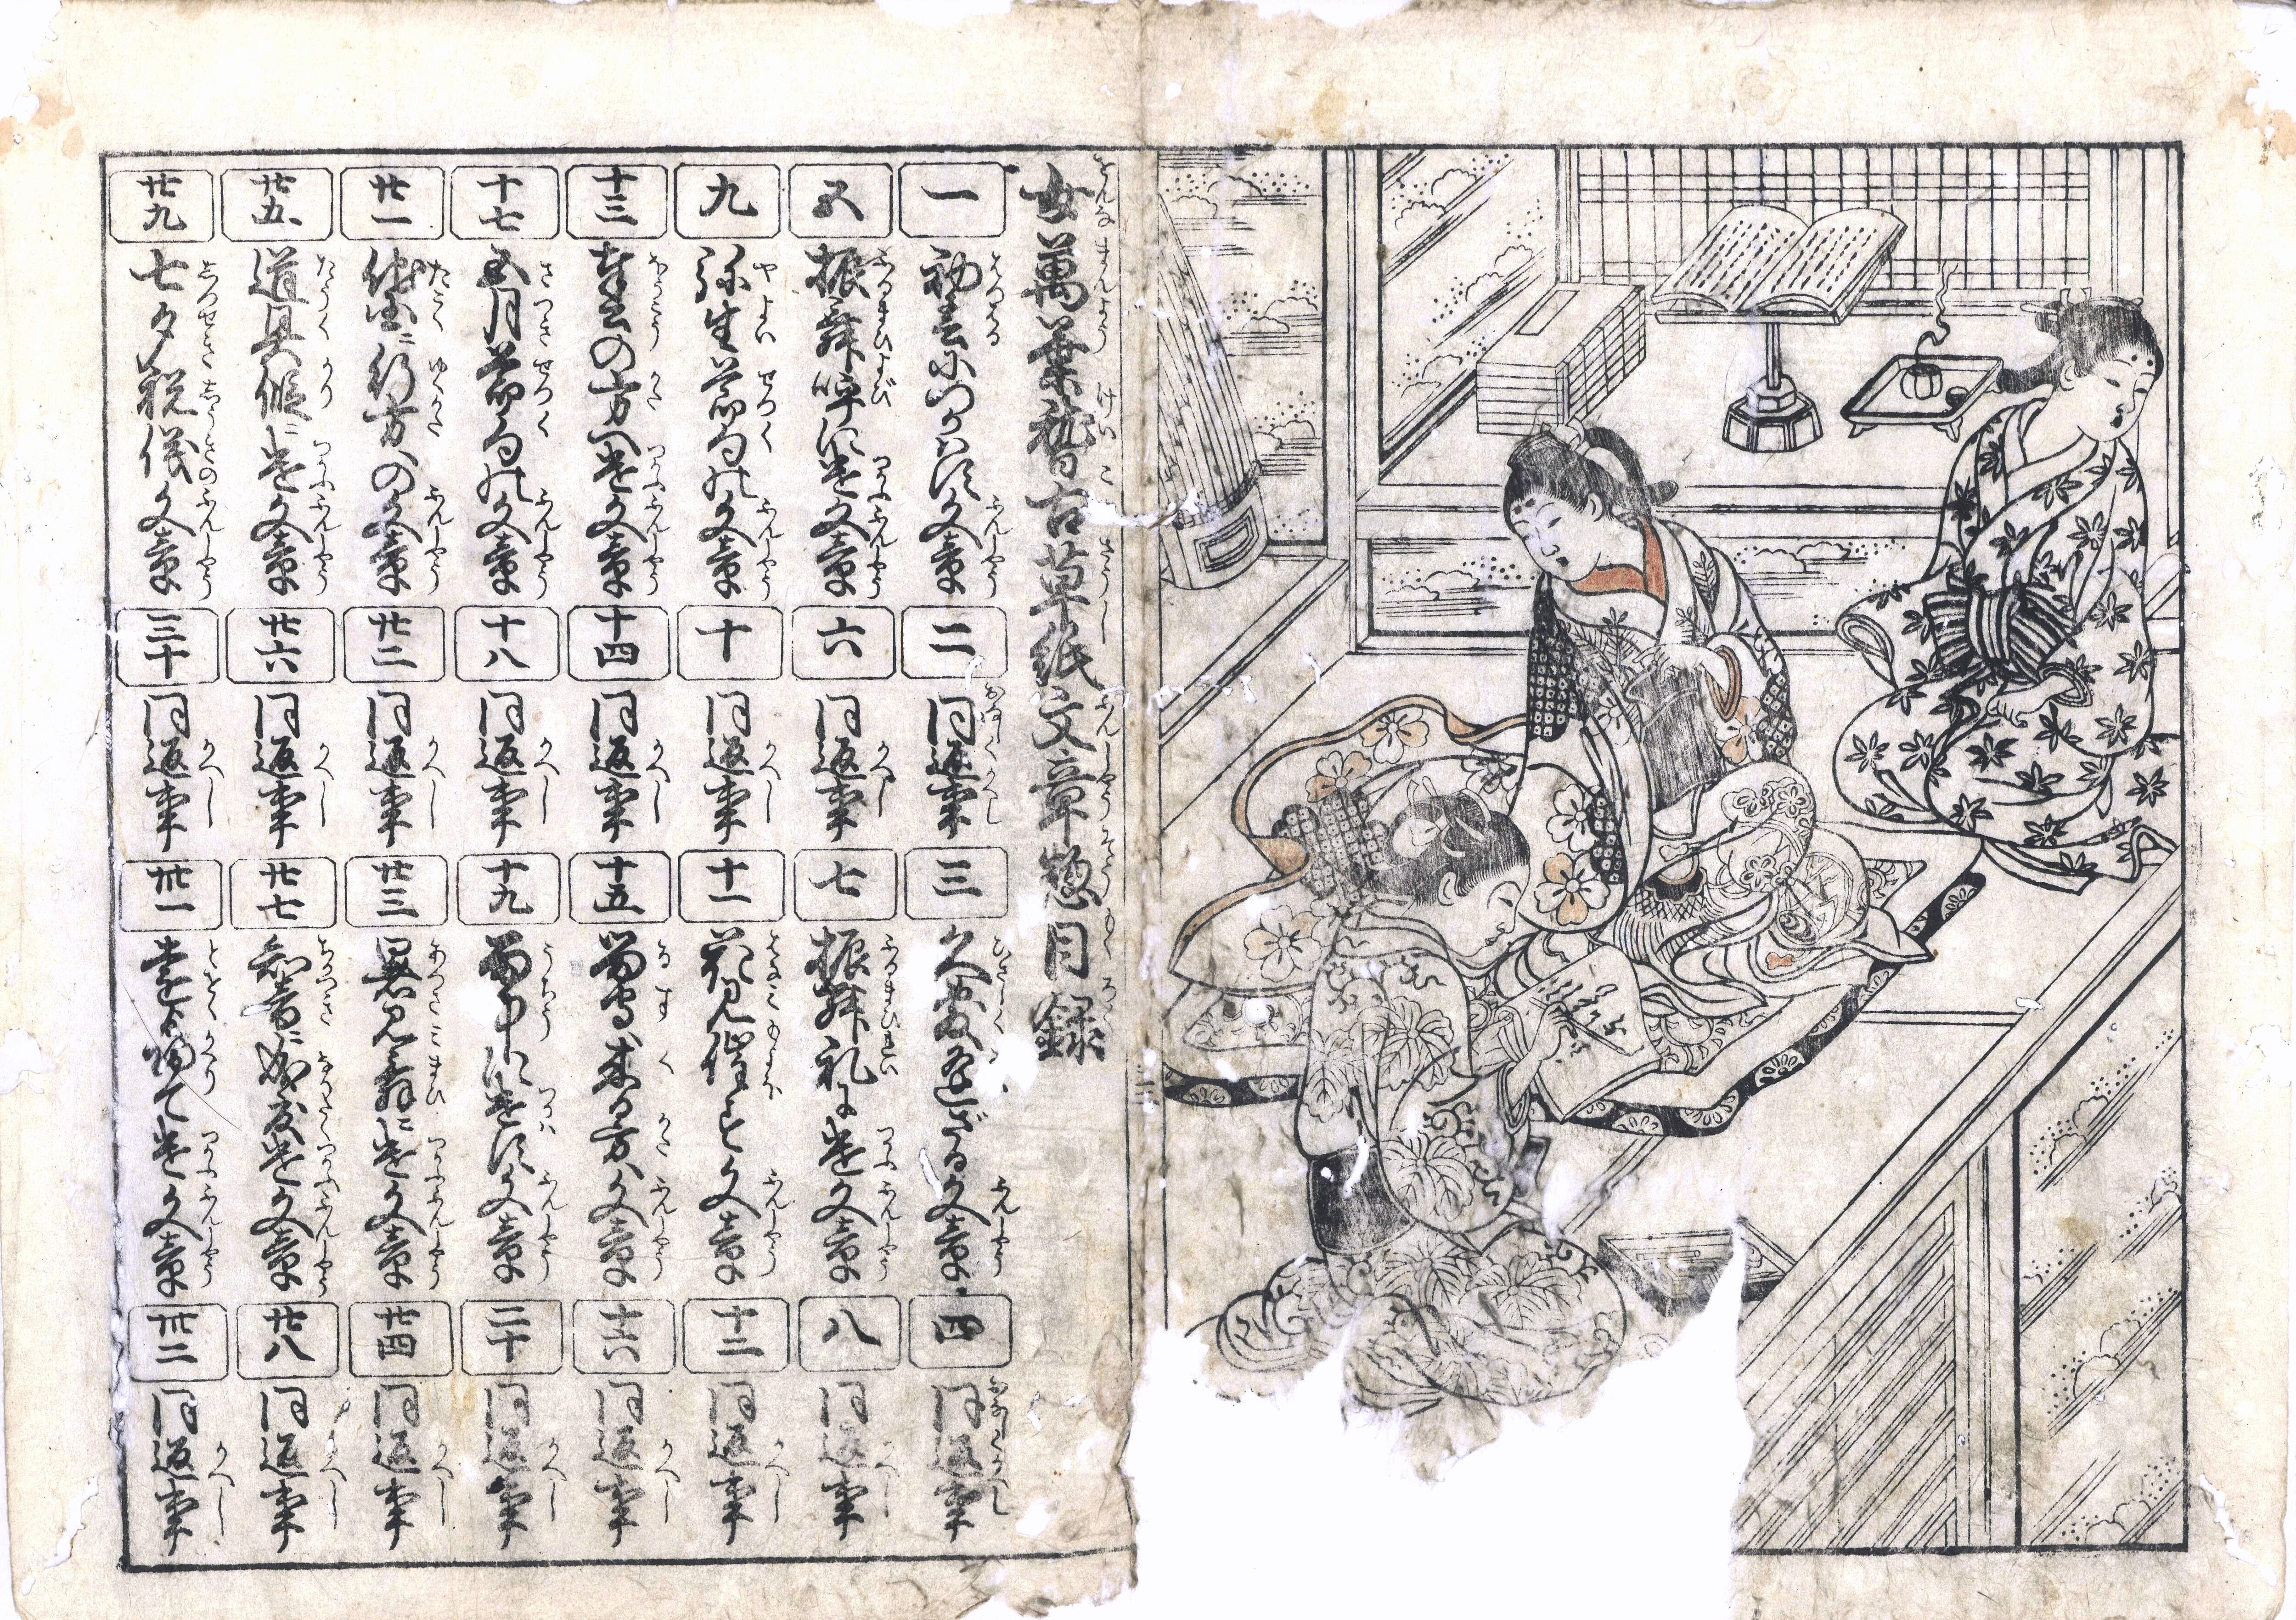 女萬葉稽古草紙文章惣目録
一 初春につかはす文章
二 同返事
三 久敷逢ざる文章
四 同返事
五 振舞呼に遣文章
六 同返事
七 振舞礼に遣文章
八 同返事
九 弥生節句の文章
十 同返事
十一 花見催すと文章
十二 同返事
十三 奉公の方へ遣文章
十四 同返事
十五 留守へ来る方へ文章
十六 同返事
十七 五月節句の文章
十八 同返事
十九 雨中に遣す文章
二十 同返事
廿一 他国に行方への文章
廿二 同返事
廿三 暑見舞に遣文章
廿四 同返事
廿五 道具借に遣文章
廿六 同返事
廿七 知音に成度遣文章
廿八 同返事
廿九 七夕祝儀文章
三十 同返事
卅一 遠帰て遣文章
卅二 同返事